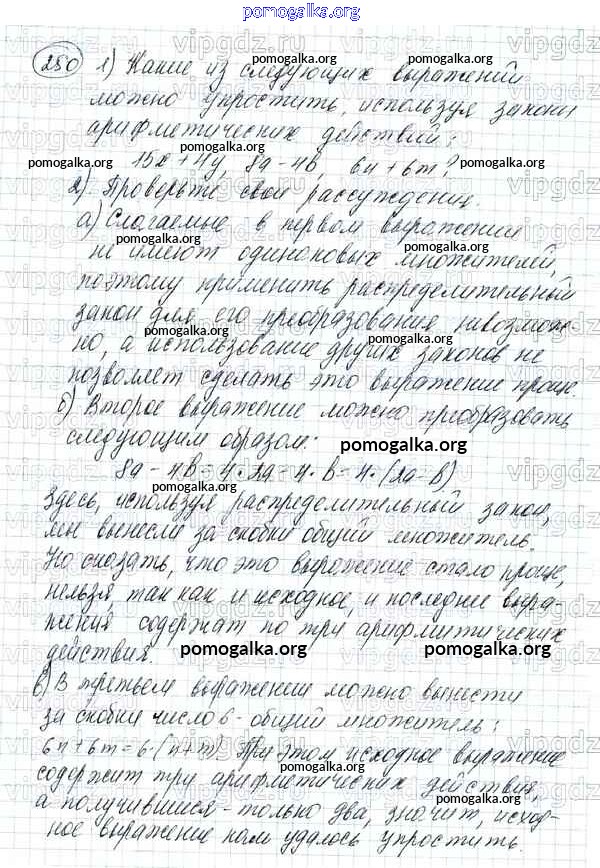 pomogalka.org
280 1) Какие из следующих выражений
можно упростить, используя законы
арифметических действий:
15x + 4y, 8a - 4b, 6n + 6m?
2) Проверьте свои рассуждения.
а) Слагаемые в первом выражении
не имеют одинаковых множителей,
поэтому применить распределительный
закон для его преобразования невозмож-
но, а использование других законов не
позволяет сделать это выражение проще.
б) Второе выражение можно преобразовать
следующим образом:
8a - 4b = 4 · 2a - 4 · b = 4 · (2a - b)
Здесь, используя распределительный закон,
мы вынесли за скобки общий множитель.
Но сказать, что это выражение стало проще,
нельзя, так как и исходное, и последнее выра-
жения содержат по три арифметических
действия.
в) В третьем выражении можно вынести
за скобки число 6 - общий множитель:
6n + 6m = 6 · (n + m). При этом исходное выражение
содержит три арифметических действия,
а получившиеся - только два, значит, исход-
ное выражение нам удалось упростить.